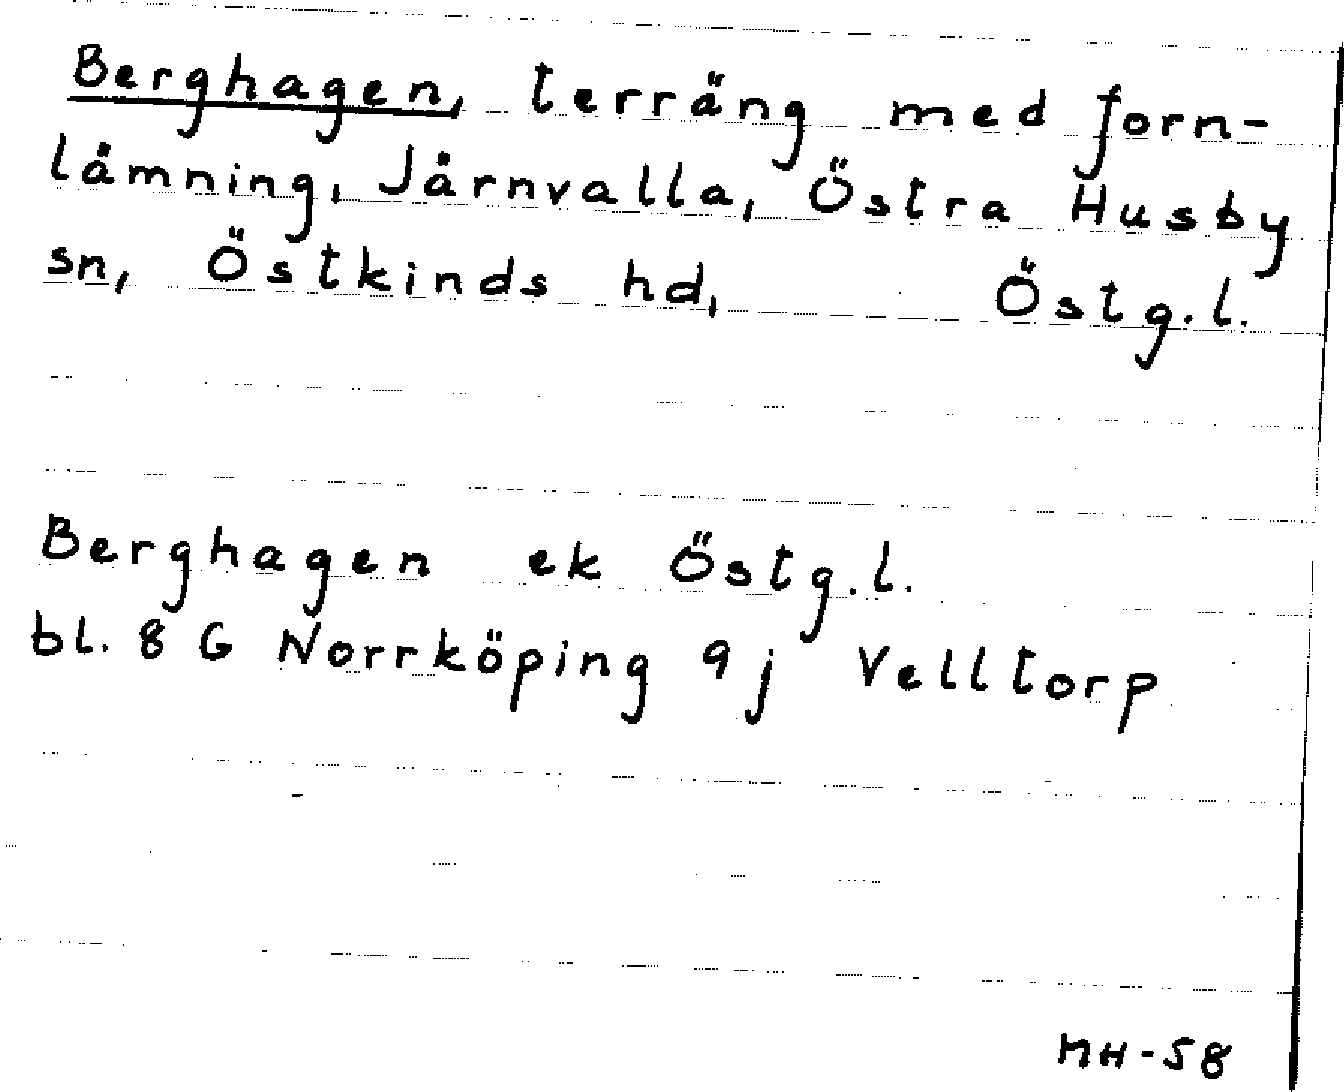 Berghagen, terräng med forn-
lämning, Järnvalla, Östra Husby
sn, Östkinds hd, Östg.l.
Berghagen ek Östg.l.
bl. 8 G Norrköping 9j Velltorp
MH-58